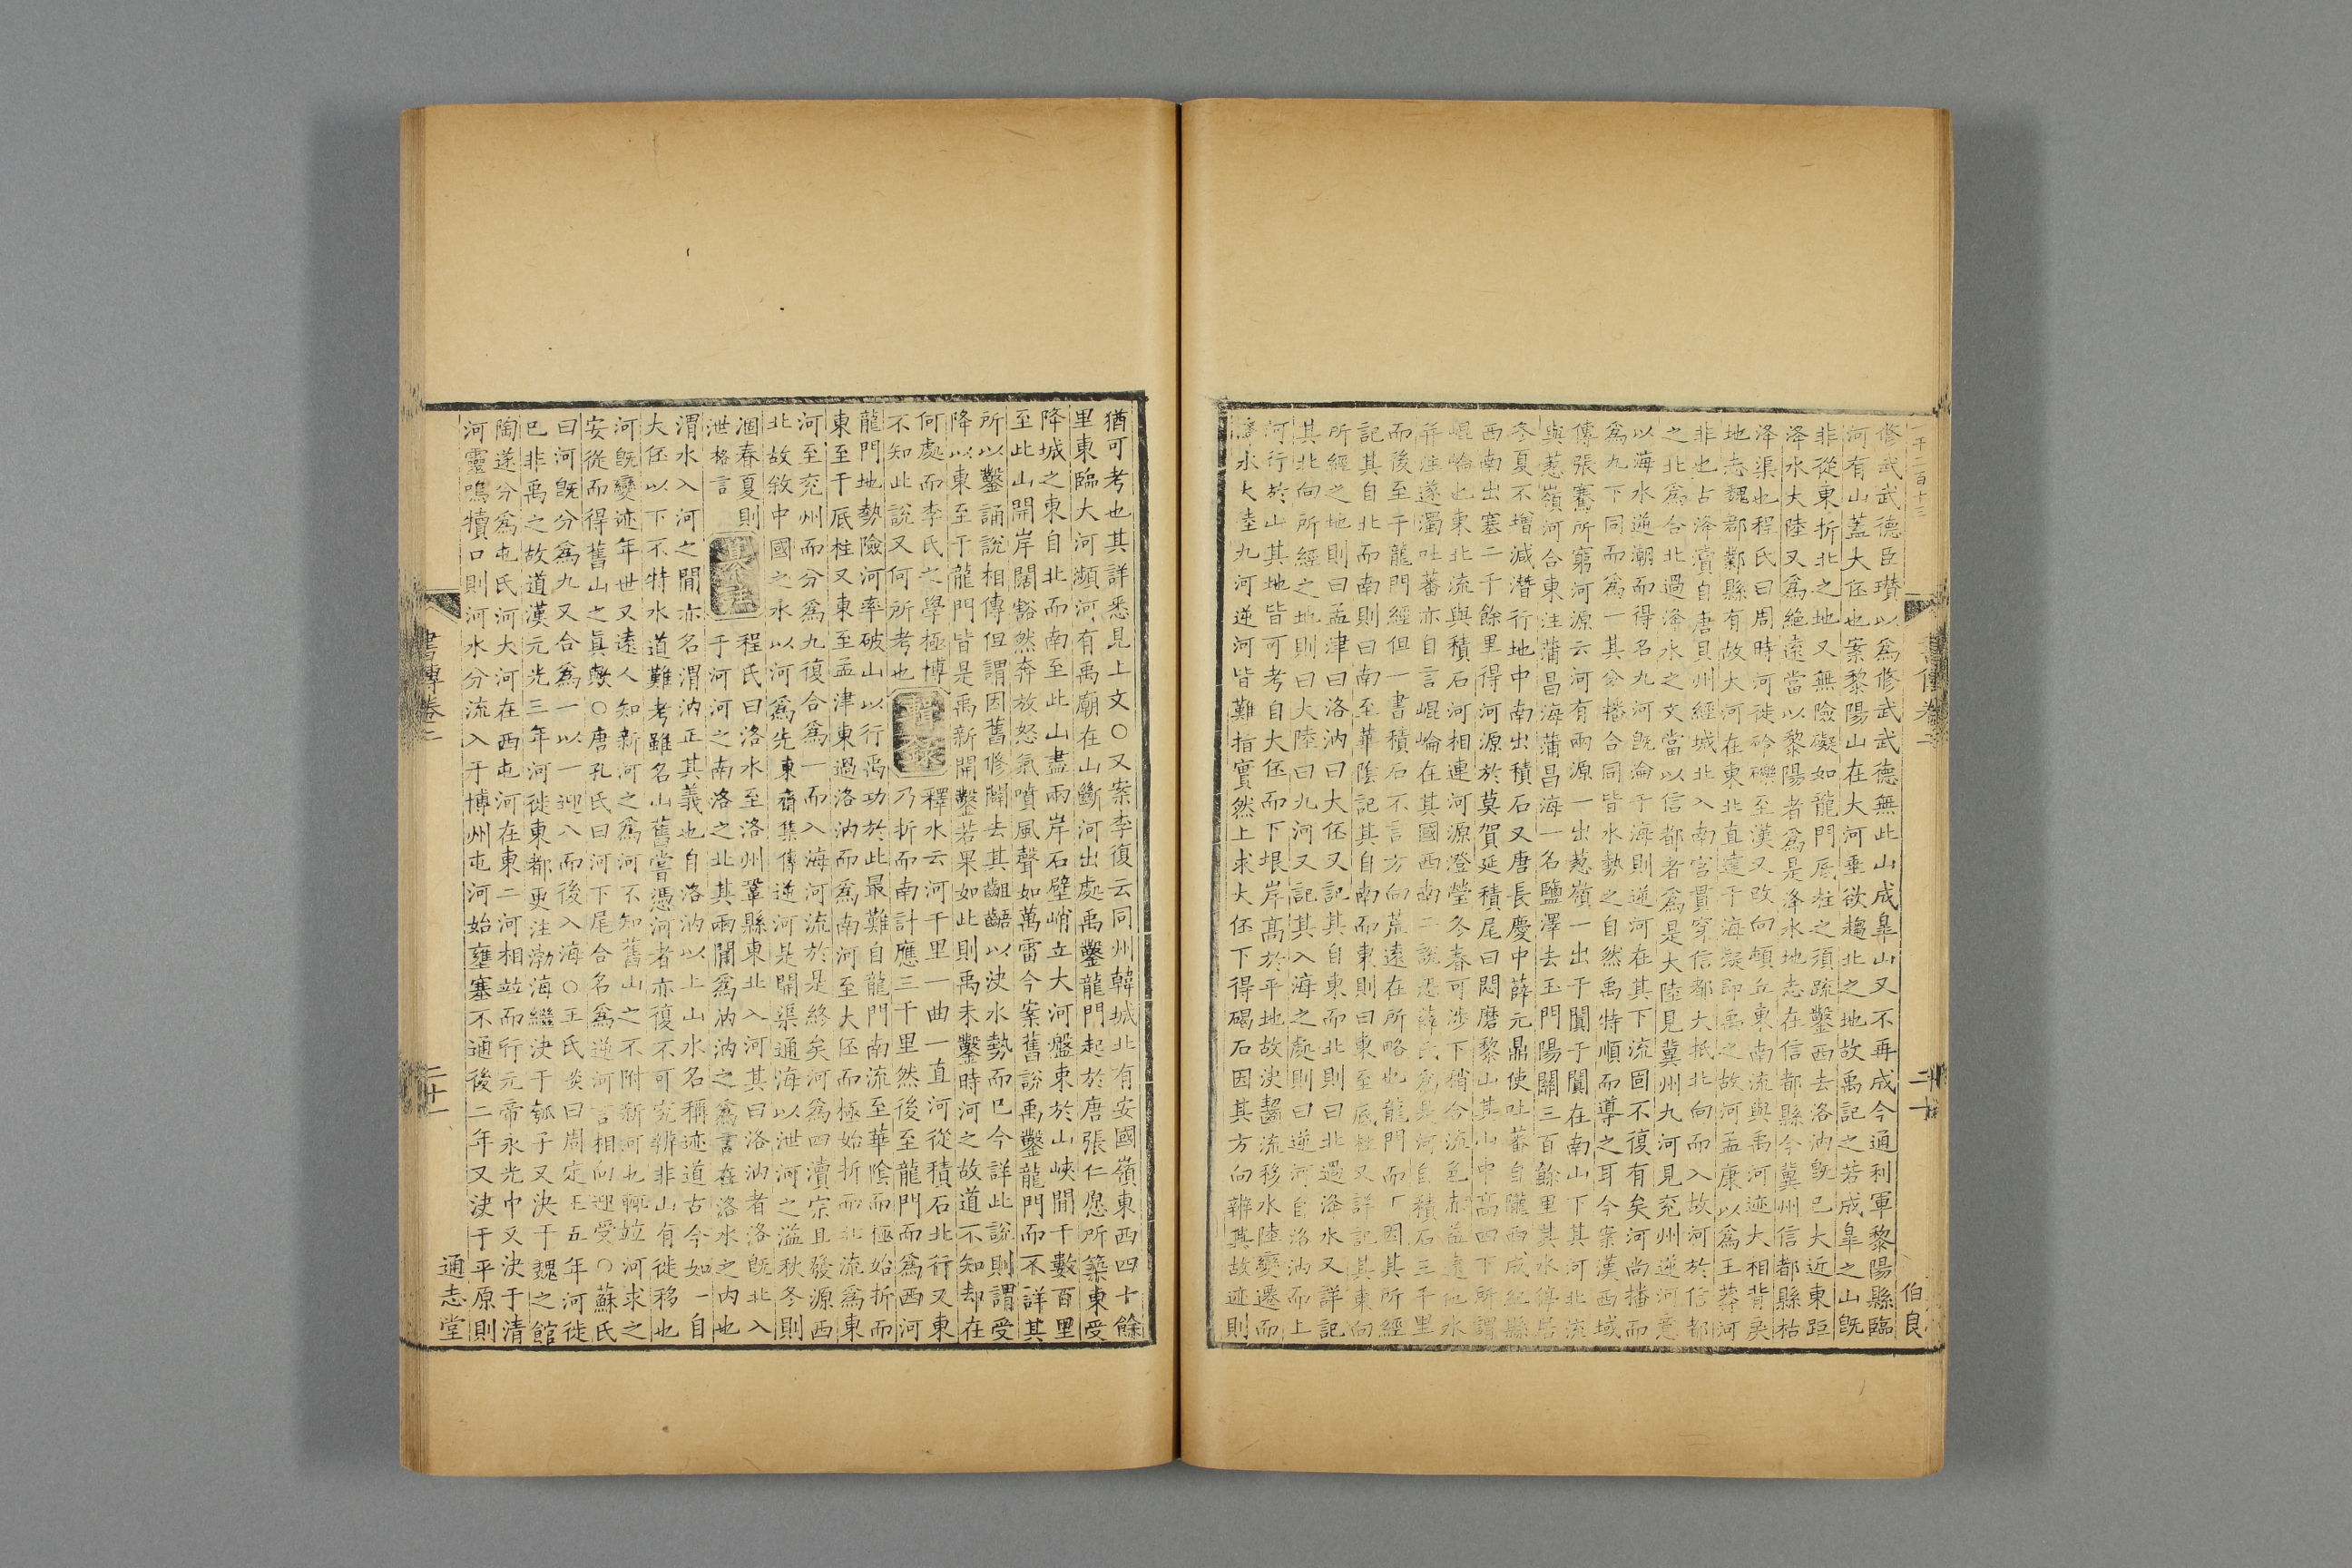 修武武德臣瓚以爲修武武德無此山成皐山又不再成今通利軍黎陽縣臨
河有山蓋大伾也案黎陽山在大河垂欲趨北之地故禹記之若成皐之山旣
非從東折北之地又無險礙如龍門底柱之須疏鑿西去洛汭旣已大近東距
洚水大陸又爲絶遠當以黎陽者爲是洚水地志在信都縣今冀州信都縣枯
洚渠也程氏曰周時河徙砱礫至漢又改向頓丘東南流與禹河迹大相背戾
地志魏郡鄴縣有故大河在東北直達于海疑即禹之故河孟康以爲王莽河
非也古洚瀆自唐貝州經城北入南宫貫穿信都大抵北向而入故河於信都
之北爲合北過洚水之文當以信都者爲是大陸見冀州九河見兖州逆河意
以海水逆潮而得名九河旣淪于海則逆河在其下流固不復有矣河尚播而
爲九下同而爲一其分播合同皆水勢之自然禹特順而導之耳今案漢西域
傳張騫所窮河源云河有兩源一出葱嶺一出于闐于闐在南山下其河北流
與葱嶺河合東注蒲昌海蒲昌海一名鹽澤去玉門陽關三百餘里其水停居
冬夏不增減潛行地中南出積石又唐長慶中薛元鼎使吐蕃自隴西成紀縣
西南出塞二千餘里得河源於莫賀延積尾曰悶磨黎山其山中高四下所謂
崐崘也東北流與積石河相連河源澄瑩冬春可涉下稍合流色赤益遠他水
并注遂濁吐蕃亦自言崐崘在其國西南二說恐薛氏爲是河自積石三千里
而後至于龍門經但一書積石不言方向荒遠在所略也龍門而下因其所經
記其自北而南則曰南至華陰記其自南而東則曰東至底柱又詳記其東向
所經之地則曰孟津曰洛汭曰大伾又記其自東而北則曰北過洚水又詳記
其北向所經之地則曰大陸曰九河又記其入海之處則曰逆河自洛汭而上
河行於山其地皆可考自大伾而下垠岸高於平地故决齧流移水陸變遷而
洚水大陸九河逆河皆難指實然上求大伾下得碣石因其方向辨其故迹則
伯良
猶可考也其詳悉見上文○又案李復云同州韓城北有安國嶺東西四十餘
里東臨大河瀕河有禹廟在山斷河出處禹鑿龍門起於唐張仁愿所築東受
降城之東自北而南至此山盡兩岸石壁峭立大河盤束於山峽間千數百里
至此山開岸闊豁然奔放怒氣噴風聲如萬雷今案舊說禹鑿龍門而不詳其
所以鑿誦說相傳但謂因舊修闢去其齟齬以决水勢而巳今詳此說則謂受
降以東至于龍門皆是禹新開鑿若果如此則禹未鑿時河之故道不知却在
何處而李氏之學極博釋水云河千里一曲一直河從積石北行又東
不知此說又何所考也乃折而南計應三千里然後至龍門而爲西河
龍門地勢險河率破山以行禹功於此最難自龍門南流至華陰而極始折而
東至于底柱又東至孟津東過洛汭而爲南河至大伾而極始折而北流爲東
河至兖州而分爲九復合爲一而入海河流於是終矣河爲四瀆宗且發源西
北故敘中國之水以河爲先東齋集傳逆河是開渠通海以泄河之溢秋冬則
涸春夏則程氏曰洛水至洛州鞏縣東北入河其曰洛汭者洛旣北入
泄格言于河河之南洛之北其兩間爲汭汭之爲言在洛水之内也
渭水入河之間亦名渭汭正其義也自洛汭以上山水名稱迹道古今如一自
大伾以下不特水道難考雖名山舊嘗憑河者亦復不可究辨非山有徙移也
河旣變迹年世又遠人知新河之爲河不知舊山之不附新河也輒竝河求之
安從而得舊山之眞歟○唐孔氏曰河下尾合名爲逆河言相向迎受○蘇氏
曰河旣分爲九又合爲一以一迎八而後入海○王氏炎曰周定王五年河徙
巳非禹之故道漢元光三年河徙東郡更注渤海繼决于瓠子又决于魏之館
陶遂分爲屯氏河大河在西屯河在東二河相竝而行元帝永光中又决于清
河靈鳴犢口則河水分流入于博州屯河始壅塞不通後二年又决于平原則
書傳卷二
二十一
通志堂